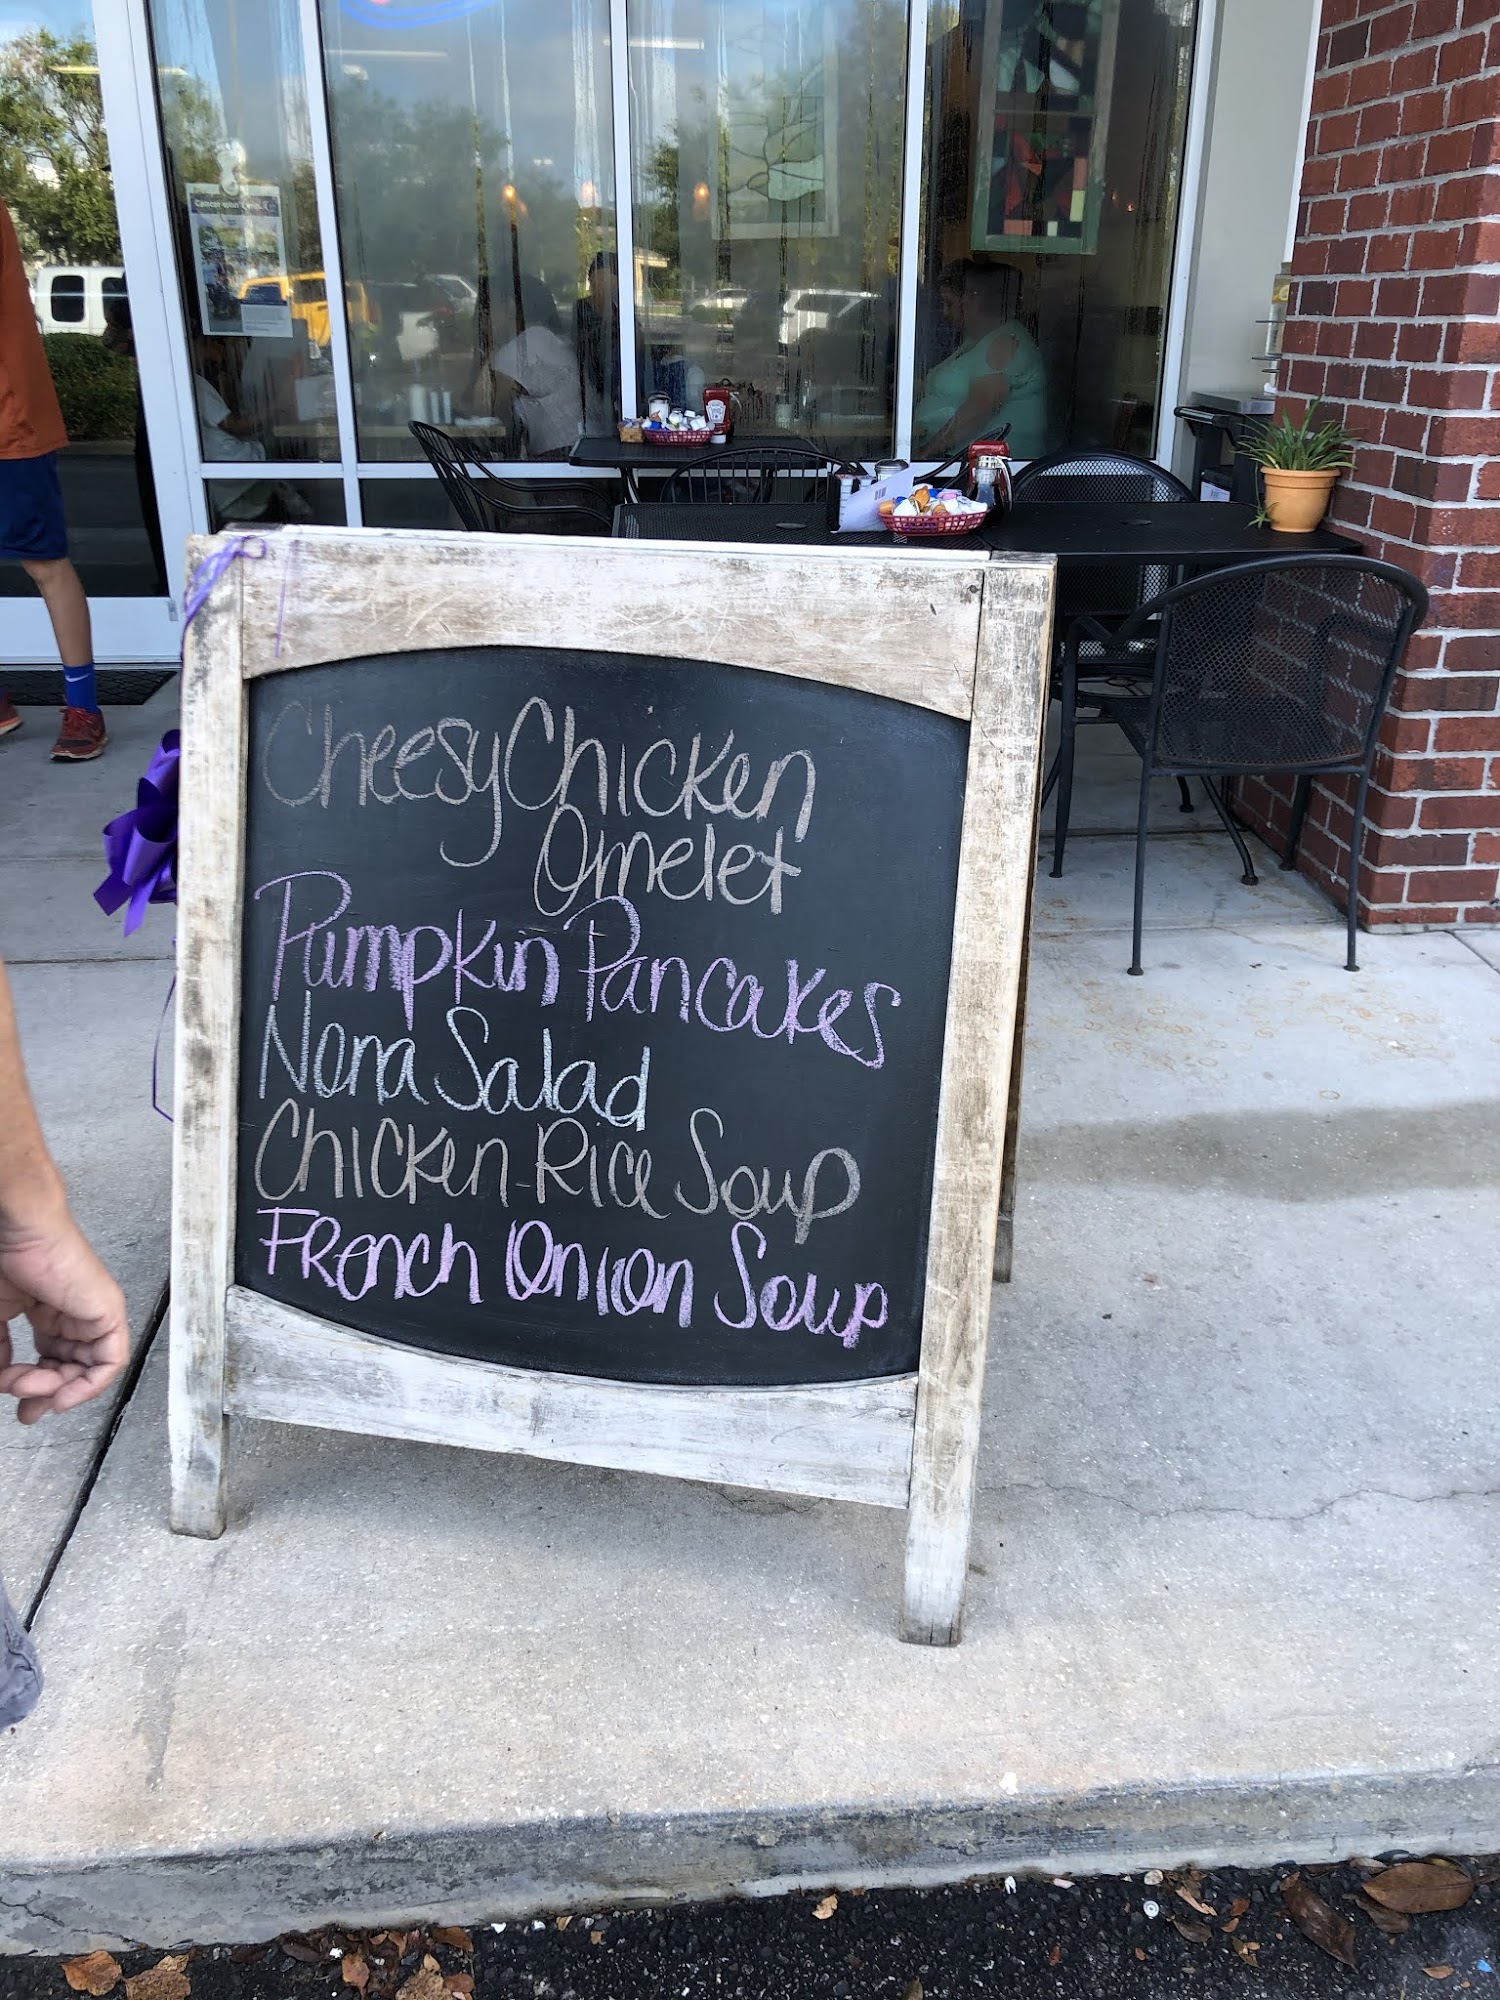 Cheesy Chicken
Omelet
Pumpkin Pancakes
Nona Salad
Chicken Rice Soup
French Onion Soup